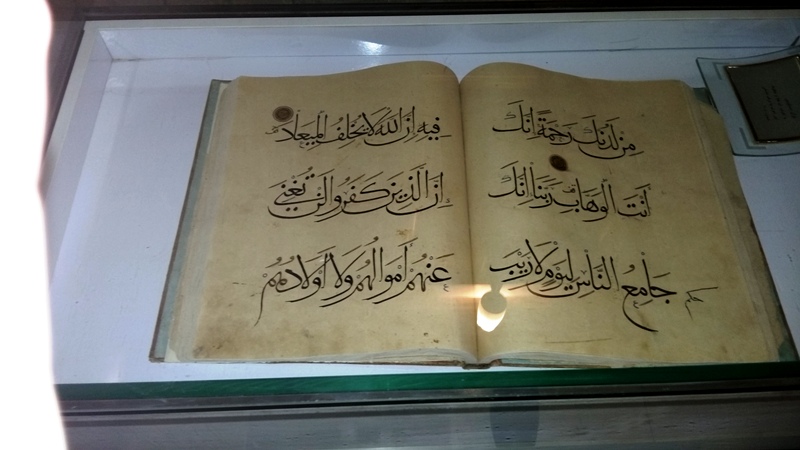 مِن لَدُنكَ رَحمَةً اِنَّكَ
اَنتَ الوَهَّابُ رَبَّنَا اِنَّكَ
جَامِعُ النَّاسِ لِيَوْمٍ لَارَيْبَ
فِيهِ اِنَّ اللهَ لَايُخْلِفُ المِيعَادَ
اِنَّ الَّذِينَ كَفَرُوا لَن تُغْنِيَ
عَنْهُمْ اَموَالُهُمْ وَلَا اَولَادُهُمْ